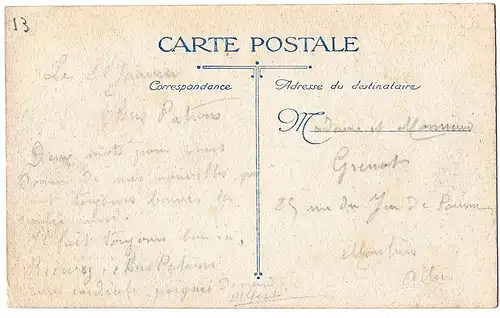 13
CARTE POSTALE
Correspondance
Adresse du destinataire
Le
Chers Patrons
Deux mots pour vous
donner de mes nouvelles qui
sont toujours bonnes
Il fait toujours bon ici,
Recevez, chers Patrons
une cordiale poignée de main
Albert
Madame et Monsieur
Grenot
85 rue du Jeu de Paume
Moulins
Allier